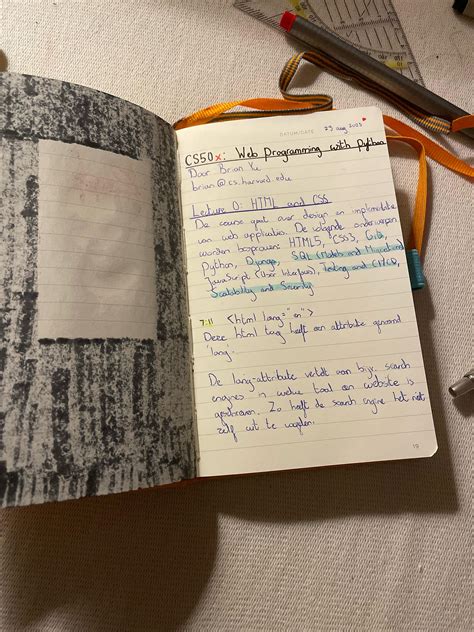 DATUM/DATE 29 aug 2025
CS50x: Web Programming with Python
Door Brian Yu
brian@cs.harvard.edu
Lecture 0: HTML and CSS
De course gaat over design en implementatie
van web applicaties. De volgende onderwerpen
worden besproken: HTML5, CSS3, Git,
Python, Django, SQL (Models and Migrations),
JavaScript (User Interfaces), Testing and CI/CD,
Scalability and Security
7:11 <html lang="en">
Deze html tag heeft een attribute genaamd
'lang.
De lang-attribute vertelt aan bijv. search
engines in welke taal een website is
geschreven. Zo hoeft de search engine het niet
zelf uit te vogelen.
10